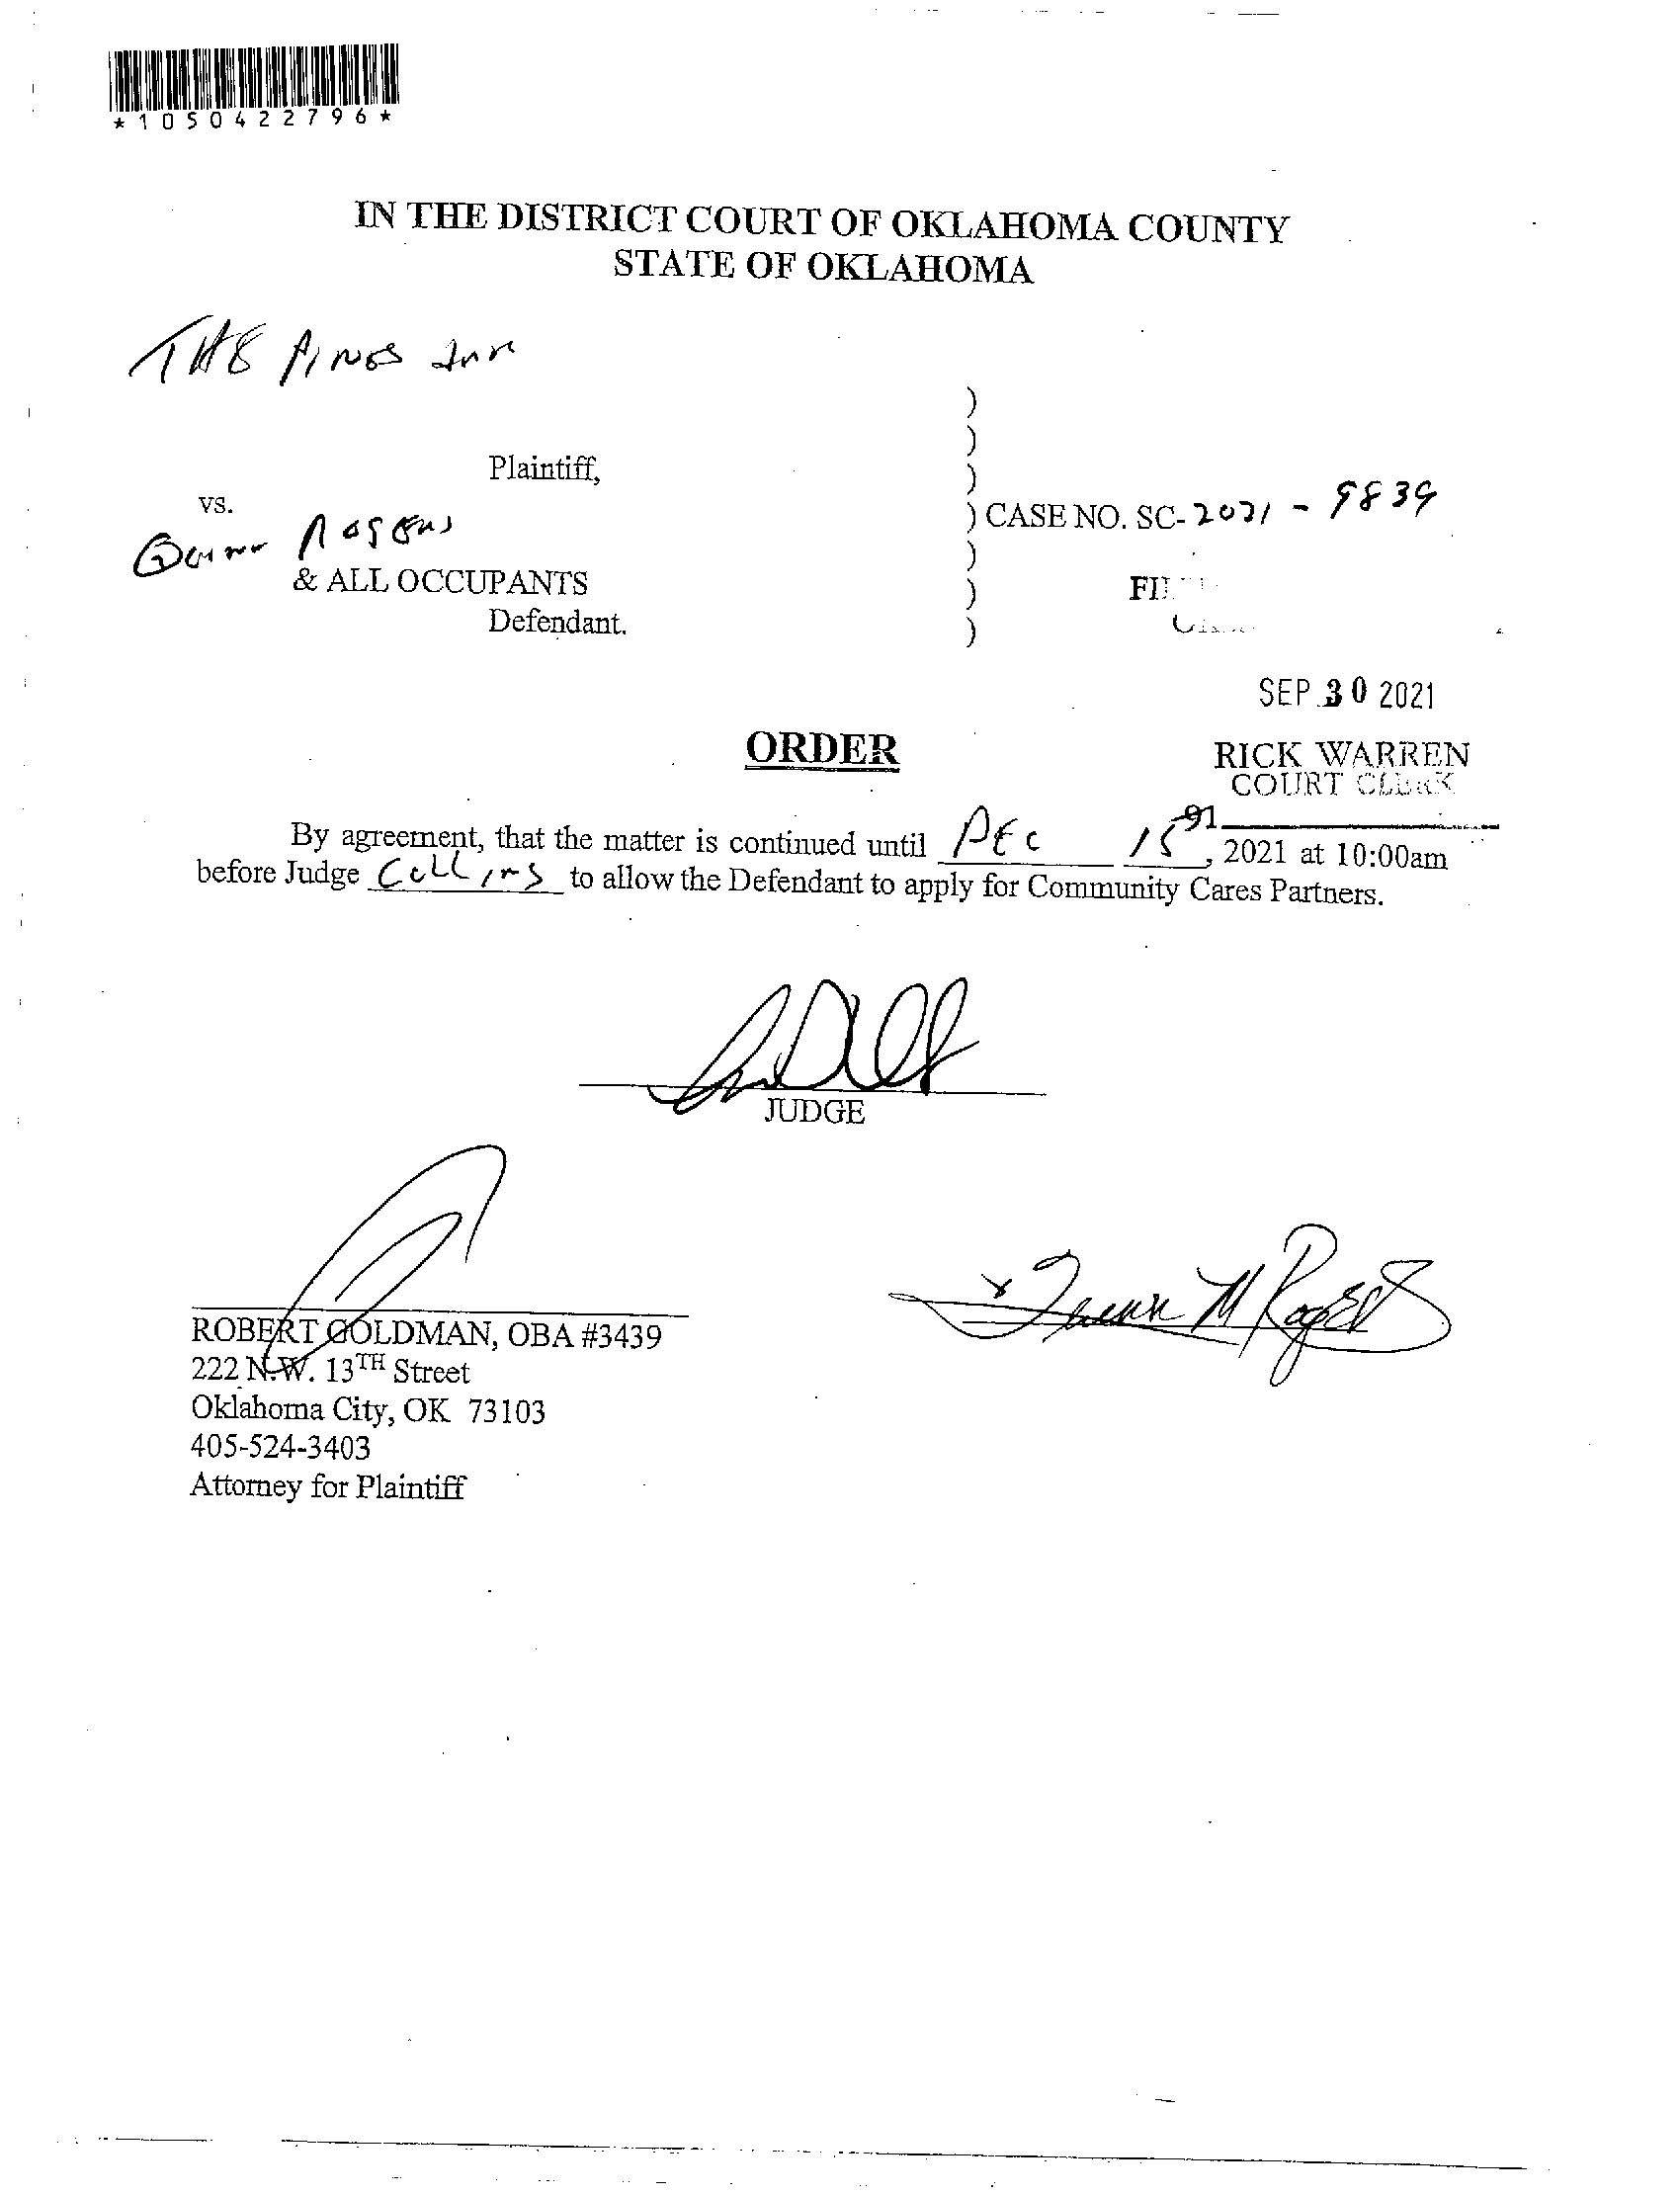 *1050422796*
IN THE DISTRICT COURT OF OKLAHOMA COUNTY
STATE OF OKLAHOMA
THE PINES Inn
)
)
Plaintiff,
)
vs.
) CASE NO. SC-2021 - 9839
Rogers
)
& ALL OCCUPANTS
)
Defendant.
)
SEP 30 2021
ORDER
RICK WARREN
COURT CLERK
By agreement, that the matter is continued until DEC 15th, 2021 at 10:00am
before Judge Collins to allow the Defendant to apply for Community Cares Partners.
JUDGE
M Rogers
ROBERT GOLDMAN, OBA #3439
222 N.W. 13TH Street
Oklahoma City, OK 73103
405-524-3403
Attorney for Plaintiff